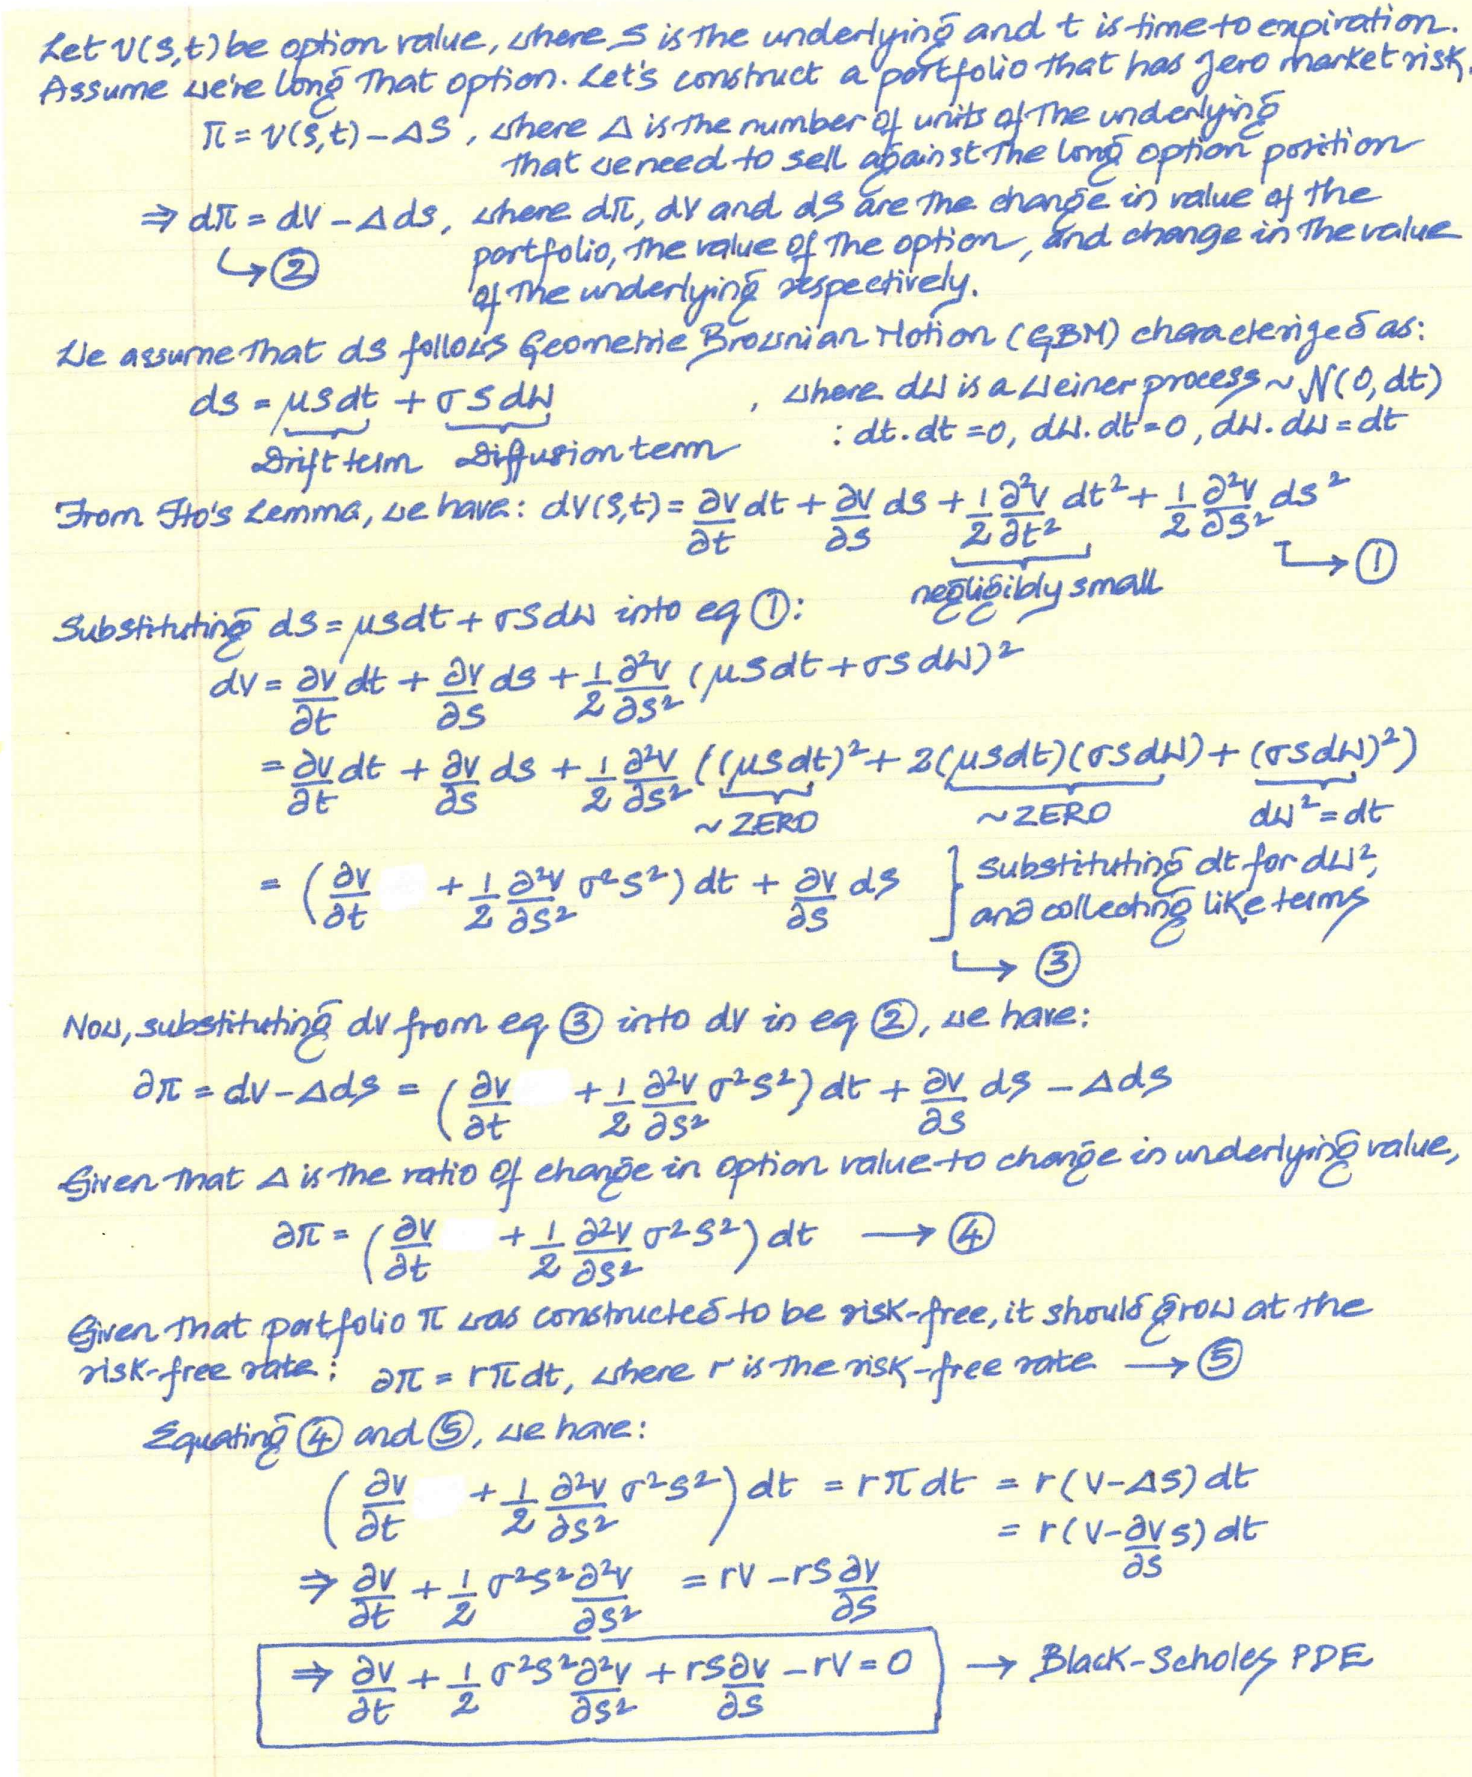 Let V(S,t) be option value, where S is the underlying and t is time to expiration.
Assume we're long that option. Let's construct a portfolio that has zero market risk.
π = V(S,t) - ΔS, where Δ is the number of units of the underlying
that we need to sell against the long option position
⇒ dπ = dV - Δ dS, where dπ, dV and dS are the change in value of the
portfolio, the value of the option, and change in the value
↳ ②
of the underlying respectively.
We assume that dS follows Geometric Brownian Motion (GBM) characterized as:
dS = μSdt + σSdW , where dW is a Weiner process ~ N(0, dt)
Drift term Diffusion term : dt·dt = 0, dW·dt = 0, dW·dW = dt
From Ito's Lemma, we have: dV(S,t) = ∂V/∂t dt + ∂V/∂S dS + 1/2 ∂²V/∂t² dt² + 1/2 ∂²V/∂S² dS²
↳ ①
negligibly small
Substituting dS = μSdt + σSdW into eq ①:
dV = ∂V/∂t dt + ∂V/∂S dS + 1/2 ∂²V/∂S² (μSdt + σSdW)²
= ∂V/∂t dt + ∂V/∂S dS + 1/2 ∂²V/∂S² ((μSdt)² + 2(μSdt)(σSdW) + (σSdW)²)
~ ZERO ~ ZERO dW² = dt
= (∂V/∂t + 1/2 ∂²V/∂S² σ²S²) dt + ∂V/∂S dS } substituting dt for dW²,
and collecting like terms
↳ ③
Now, substituting dV from eq ③ into dV in eq ②, we have:
∂π = dV - ΔdS = (∂V/∂t + 1/2 ∂²V/∂S² σ²S²) dt + ∂V/∂S dS - ΔdS
Given that Δ is the ratio of change in option value to change in underlying value,
∂π = (∂V/∂t + 1/2 ∂²V/∂S² σ²S²) dt → ④
Given that portfolio π was constructed to be risk-free, it should grow at the
risk-free rate: ∂π = rπdt, where r is the risk-free rate → ⑤
Equating ④ and ⑤, we have:
(∂V/∂t + 1/2 ∂²V/∂S² σ²S²) dt = rπdt = r(V-ΔS) dt
= r(V - ∂V/∂S S) dt
⇒ ∂V/∂t + 1/2 σ²S² ∂²V/∂S² = rV - rS ∂V/∂S
⇒ ∂V/∂t + 1/2 σ²S² ∂²V/∂S² + rS ∂V/∂S - rV = 0 → Black-Scholes PDE